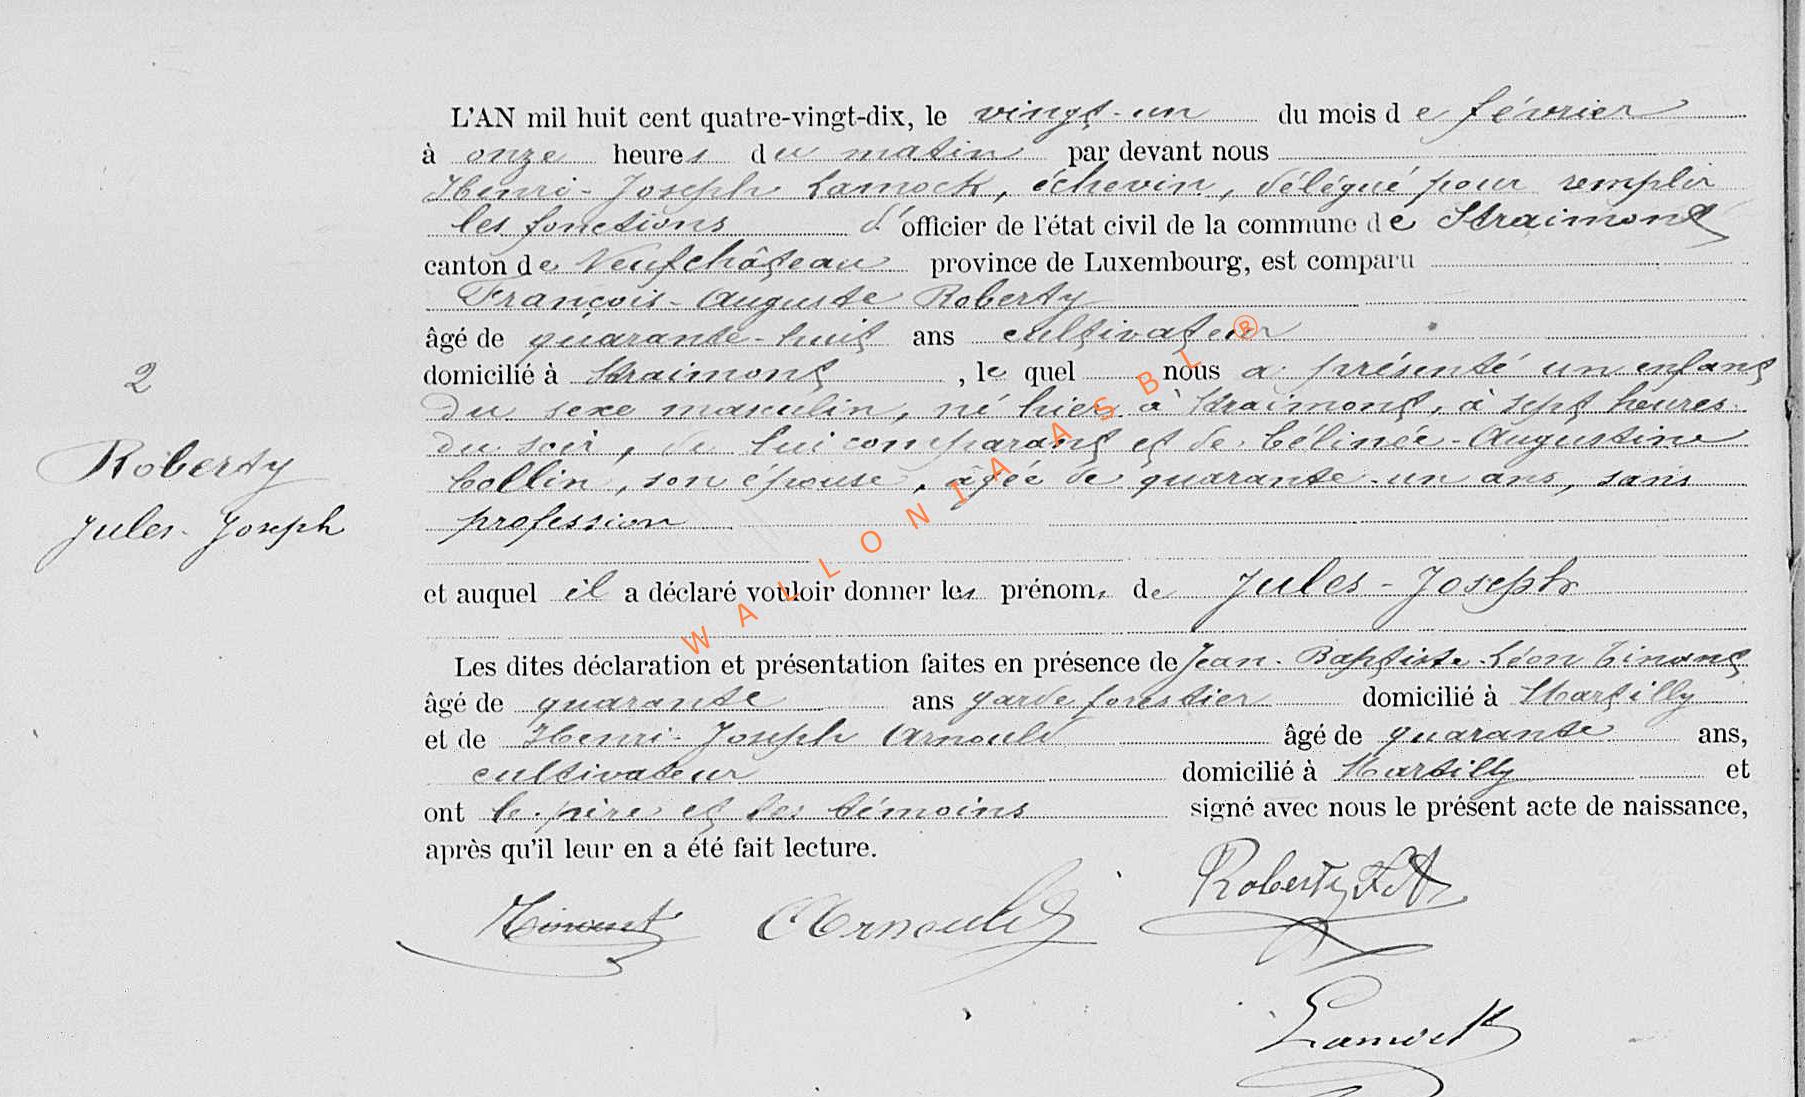 L'AN mil huit cent quatre-vingt-dix, le vingt-un du mois de février
à onze heures du matin par devant nous
Henri-Joseph Lamock, échevin, délégué pour remplir
les fonctions d'officier de l'état civil de la commune de Straimont
canton de Neufchâteau province de Luxembourg, est comparu
François-Auguste Roberty
âgé de quarante-huit ans cultivateur
domicilié à Straimont, le quel nous a présenté un enfant
du sexe masculin, né hier à Straimont, à sept heures
du soir, de lui comparant et de Célinée-Augustine
Collin, son épouse, âgée de quarante-un ans, sans
profession
et auquel il a déclaré vouloir donner les prénoms de Jules-Joseph
Les dites déclaration et présentation faites en présence de Jean-Baptiste-Léon Tinant
âgé de quarante ans garde forestier domicilié à Martilly
et de Henri-Joseph Arnould âgé de quarante ans,
cultivateur domicilié à Martilly et
ont le père et les témoins signé avec nous le présent acte de naissance,
après qu'il leur en a été fait lecture.
2
Roberty
Jules-Joseph
Tinant Arnould Roberty F A
Lamock
WALLONIA ASBL ®